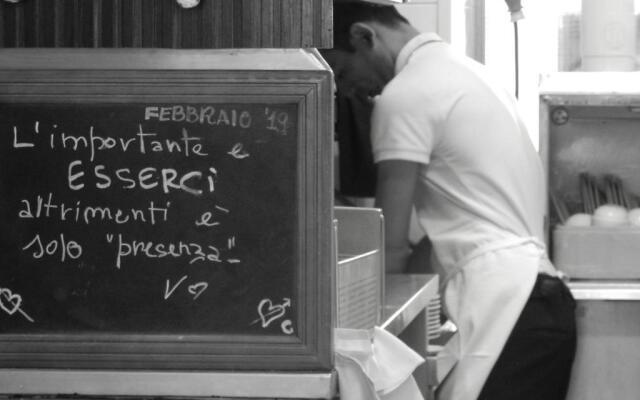 FEBBRAIO '19
L'importante è
ESSERCi
altrimenti è
solo "presenza"
V
C